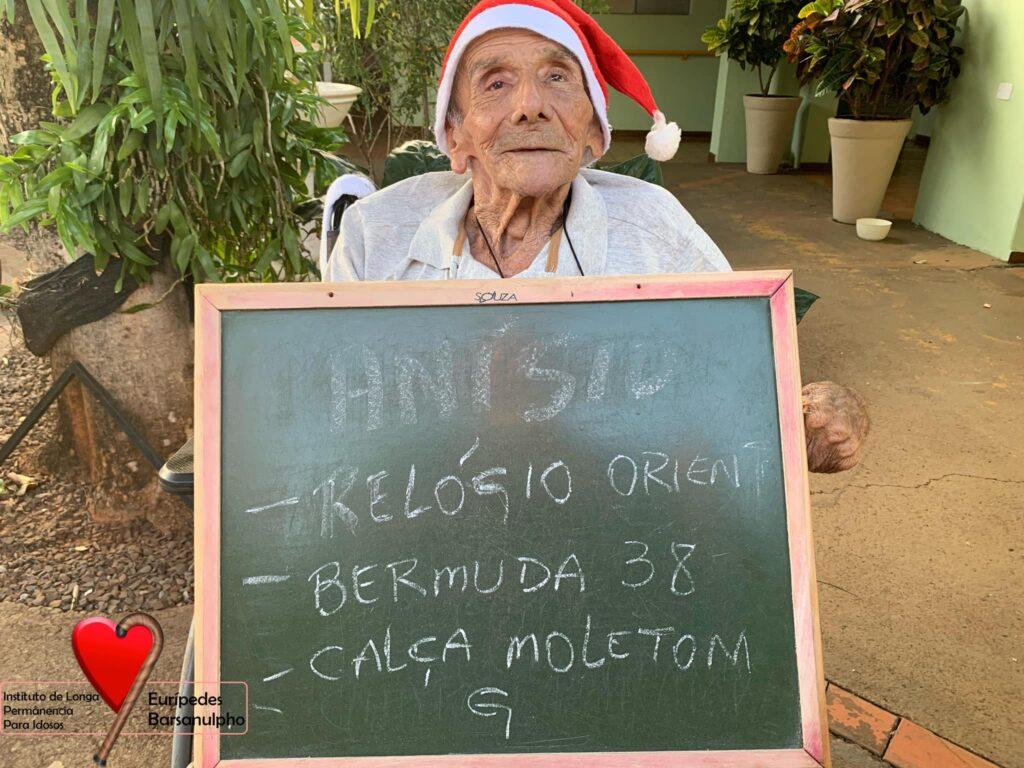 SOUZA
ANÍSIO
- RELÓGIO ORIENT
- BERMUDA 38
- CALÇA MOLETOM
G
Instituto de Longa
Permánencia
Para Idosos
Eurípedes
Barsanulpho